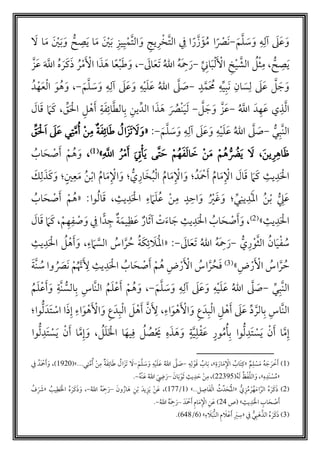 وَعَلَى آلِهِ وَسَلَّمَ- نَصْرًا مُؤَزَّرًا فِي التَّخْرِيجِ وَالتَّمْيِيزِ بَيْنَ مَا يَصِحُّ وَبَيْنَ مَا لَا
يَصِحُّ، مِثْلُ الشَّيْخِ الْأَلْبَانِيِّ -رَحِمَهُ اللهُ تَعَالَى-، وَطَبْعًا هَذَا الْأَمْرُ ذَكَرَهُ اللهُ عَزَّ
وَجَلَّ عَلَى لِسَانِ نَبِيِّهِ مُحَمَّدٍ -صَلَّى اللهُ عَلَيْهِ وَعَلَى آلِهِ وَسَلَّمَ-، وَهُوَ الْعَهْدُ
الَّذِي عَهِدَ اللهُ -عَزَّ وَجَلَّ- لَيَنْصُرُ هَذَا الدِّينَ بِالطَّائِفَةِ أَهْلِ الْحَقِّ، كَمَا قَالَ
النَّبِيُّ -صَلَّى اللهُ عَلَيْهِ وَعَلَى آلِهِ وَسَلَّمَ-: «لَا تَزَالُ طَائِفَةٌ مِنْ أُمَّتِي عَلَى الْحَقِّ
ظَاهِرِينَ، لَا يَضُرُّهُمْ مَنْ خَالَفَهُمْ حَتَّى يَأْتِيَ أَمْرُ اللهِ»(1)، وَهُمْ أَصْحَابُ
الْحَدِيثِ كَمَا قَالَ الْإِمَامُ أَحْمَدُ؛ وَالْإِمَامُ الْبُخَارِيُّ؛ وَالْإِمَامُ ابْنُ مَعِينٍ؛ وَكَذَلِكَ
عَلِيُّ بْنُ الْمَدِينِيِّ؛ وَغَيْرُ وَاحِدٍ مِنْ عُلَمَاءِ الْحَدِيثِ، قَالُوا: «هُمْ أَصْحَابُ
الْحَدِيثِ»(2)، وَأَصْحَابُ الْحَدِيثِ جَاءَتْ آثَارٌ عَظِيمَةٌ جِدًّا فِي وَصْفِهِمْ، كَمَا قَالَ
سُفْيَانُ الثَّوْرِيُّ -رَحِمَهُ اللهُ تَعَالَى-: «الْمَلَائِكَةُ حُرَّاسُ السَّمَاءِ، وَأَهْلُ الْحَدِيثِ
حُرَّاسُ الْأَرْضِ»(3)، فَحُرَّاسُ الْأَرْضِ هُمْ أَصْحَابُ الْحَدِيثِ لِأَنَّهُمْ نَصَرُوا سُنَّةَ
النَّبِيِّ -صَلَّى اللهُ عَلَيْهِ وَعَلَى آلِهِ وَسَلَّمَ-، وَهُمْ أَعْلَمُ النَّاسِ بِالسُّنَّةِ وَأَعْلَمُ
النَّاسِ بِالرَّدِّ عَلَى أَهْلِ الْبِدَعِ وَالْأَهْوَاءِ، لِأَنَّ أَهْلَ الْبِدَعِ وَالْأَهْوَاءِ إِذَا اسْتَدَلُّوا؛
إِمَّا أَنْ يَسْتَدِلُّوا بِأُمُورٍ عَقْلِيَّةٍ وَهَذِهِ يَحْصُلُ فِيهَا الْخَلَلُ، وَإِمَّا أَنْ يَسْتَدِلُّوا
(1) أَخْرَجَهُ مُسْلِمٌ «كِتَابُ الْإِمَارَةِ»، «بَابُ قَوْلِهِ -صَلَّى اللهُ عَلَيْهِ وَسَلَّمَ- لَا تَزَالُ طَائِفَةٌ مِنْ أُمَّتِي...»(1920)، وَأَحْمَدُ فِي
«مُسْنَدِهِ» (22395)، وَاللَّفْظُ لَهُ؛ مِنْ حَدِيثِ ثَوْبَانَ -رَضِيَ اللهُ عَنْهُ-
(2) ذَكَرَهُ الرَّامَهُرْمُزِيُّ «الْمُحَدِّثُ الْفَاصِلُ...»، (177/1) عَنْ يَزِيدَ بْنِ هَارُونَ -رَحِمَهُ اللهُ-، وَذَكَرَهُ الْخَطِيبُ «شَرَفُ
أَصْحَابِ الْحَدِيثِ» (ص 24) عَنِ الْإِمَامِ أَحْمَدَ -رَحِمَهُ اللهُ-
(3) ذَكَرَهُ الذَّهَبِيُّ فِي «سِيَرِ أَعْلَامِ النُّبَلَاءِ»، (648/6)